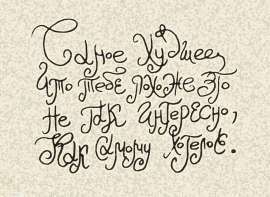 Самое худшее,
что тебе похоже это
не так интересно,
как самому хотелось.